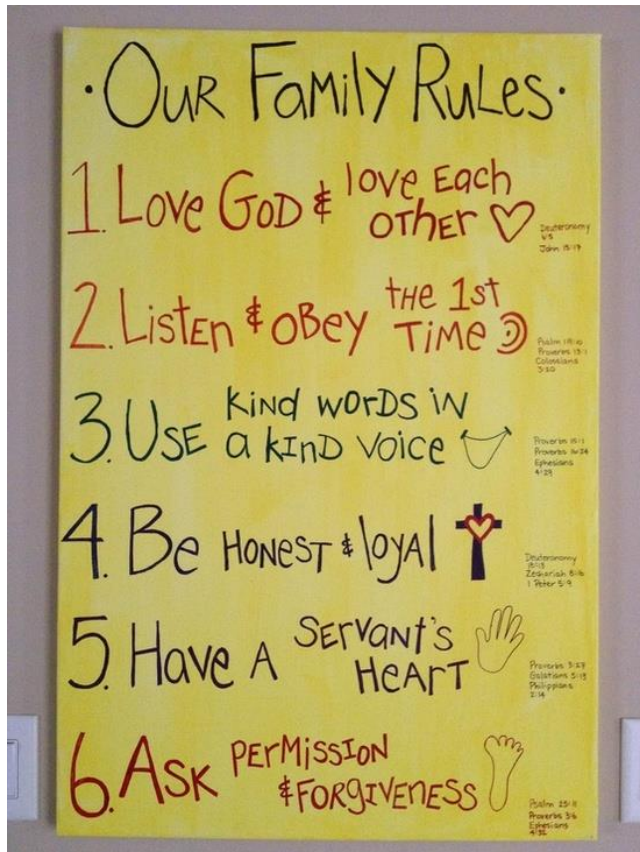 ·Our Family Rules·
1. Love God & love Each
other
Deuteronomy
6:5
John 15:17
2. Listen & obey the 1st
Time
Proverbs 13:1
Colossians
3:20
3. Use kind words in
a kind voice
Proverbs 15:1
Proverbs 16:24
Ephesians
4:29
4. Be Honest & loyal
Deuteronomy
Zechariah 8:16
1 Peter
5. Have A Servant's
Heart
Proverbs 3:27
Galatians 5:13
Philippians
2:14
6. Ask permission
& Forgiveness
Psalm 25:11
Proverbs 3:6
Ephesians
4:32